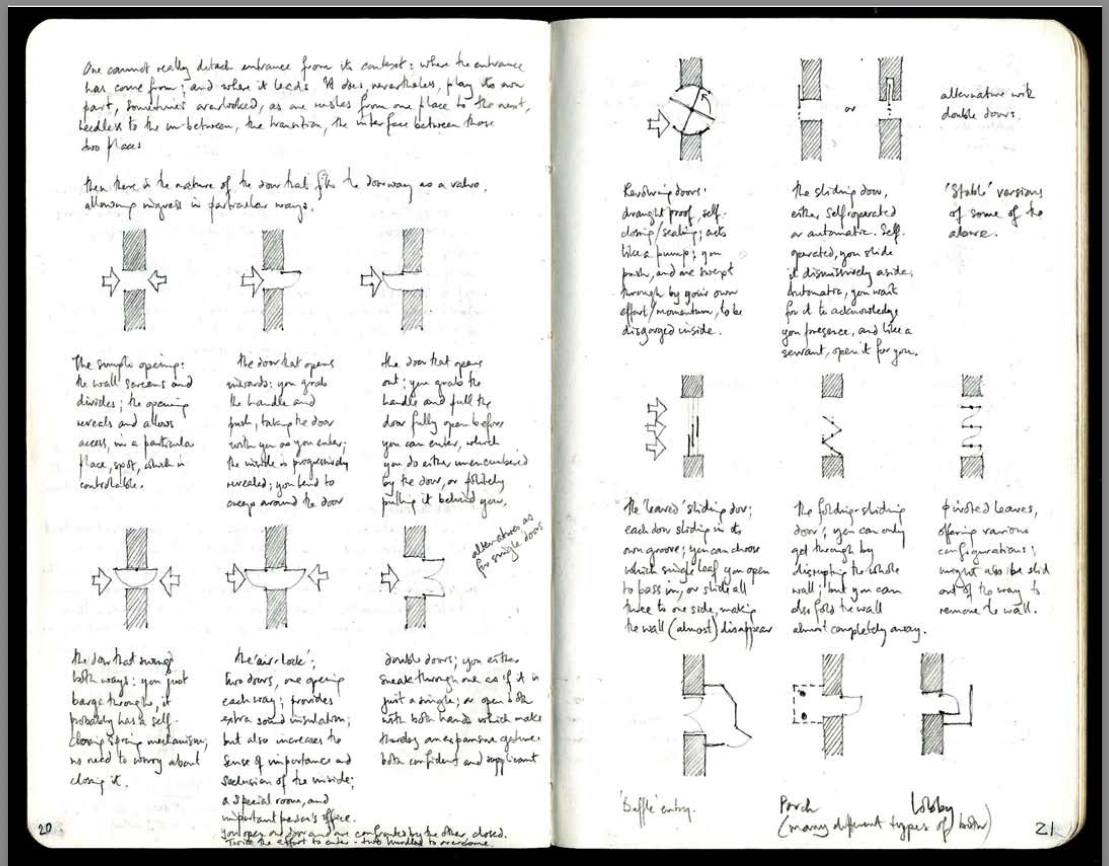 One cannot really detach entrance from its context: where the entrance
has come from; and where it leads. It does, nevertheless, play its own
part, sometimes overlooked, as one rushes from one place to the next,
heedless to the in-between, the transition, the interface between those
two places
Then there is the nature of the door that fits the doorway as a valve,
allowing ingress in particular ways.
The simple opening:
the wall screens and
divides; the opening
reveals and allows
access, in a particular
place, spot, which is
controllable.
the door that opens
inwards: you grab
the handle and
push, taking the door
with you as you enter;
the inside is progressively
revealed; you tend to
creep around the door
the door that opens
out: you grab the
handle and pull the
door fully open before
you can enter, which
you do either unencumbered
by the door, or politely
pulling it behind you.
alternatives as
for single doors
the door that swings
both ways: you just
barge through, it
probably has a self-
closing spring mechanism;
no need to worry about
closing it.
the 'air-lock';
two doors, one opening
each way; provides
extra sound insulation;
but also increases the
sense of importance and
seclusion of the inside;
a special room, and
important person's office.
you open one door and are confronted by the other, closed.
Twice the effort to enter - two hurdles to overcome.
double doors; you either
sneak through one as if it is
just a single; or open both
with both hands which makes
thereby an expansive gesture
both confident and supplicant
20
or
alternative with
double doors.
Revolving doors:
draught proof, self-
closing/sealing; acts
like a pump; you
push, and are swept
through by your own
effort/momentum, to be
disgorged inside.
the sliding door,
either self operated
or automatic. Self-
operated, you slide
it dismissively aside;
automatic, you wait
for it to acknowledge
your presence, and like a
servant, open it for you.
'Stable' versions
of some of the
above.
the 'leaved' sliding door;
each door sliding in its
own groove; you can choose
which single leaf you open
to pass in, or slide all
three to one side, making
the wall (almost) disappear
the folding-sliding
door; you can only
get through by
disrupting the whole
wall; but you can
also fold the wall
almost completely away.
pivoted leaves,
offering various
configurations;
might also be slid
out of the way to
remove the wall.
'Baffle' entry.
Porch
Lobby
(many different types of both)
21